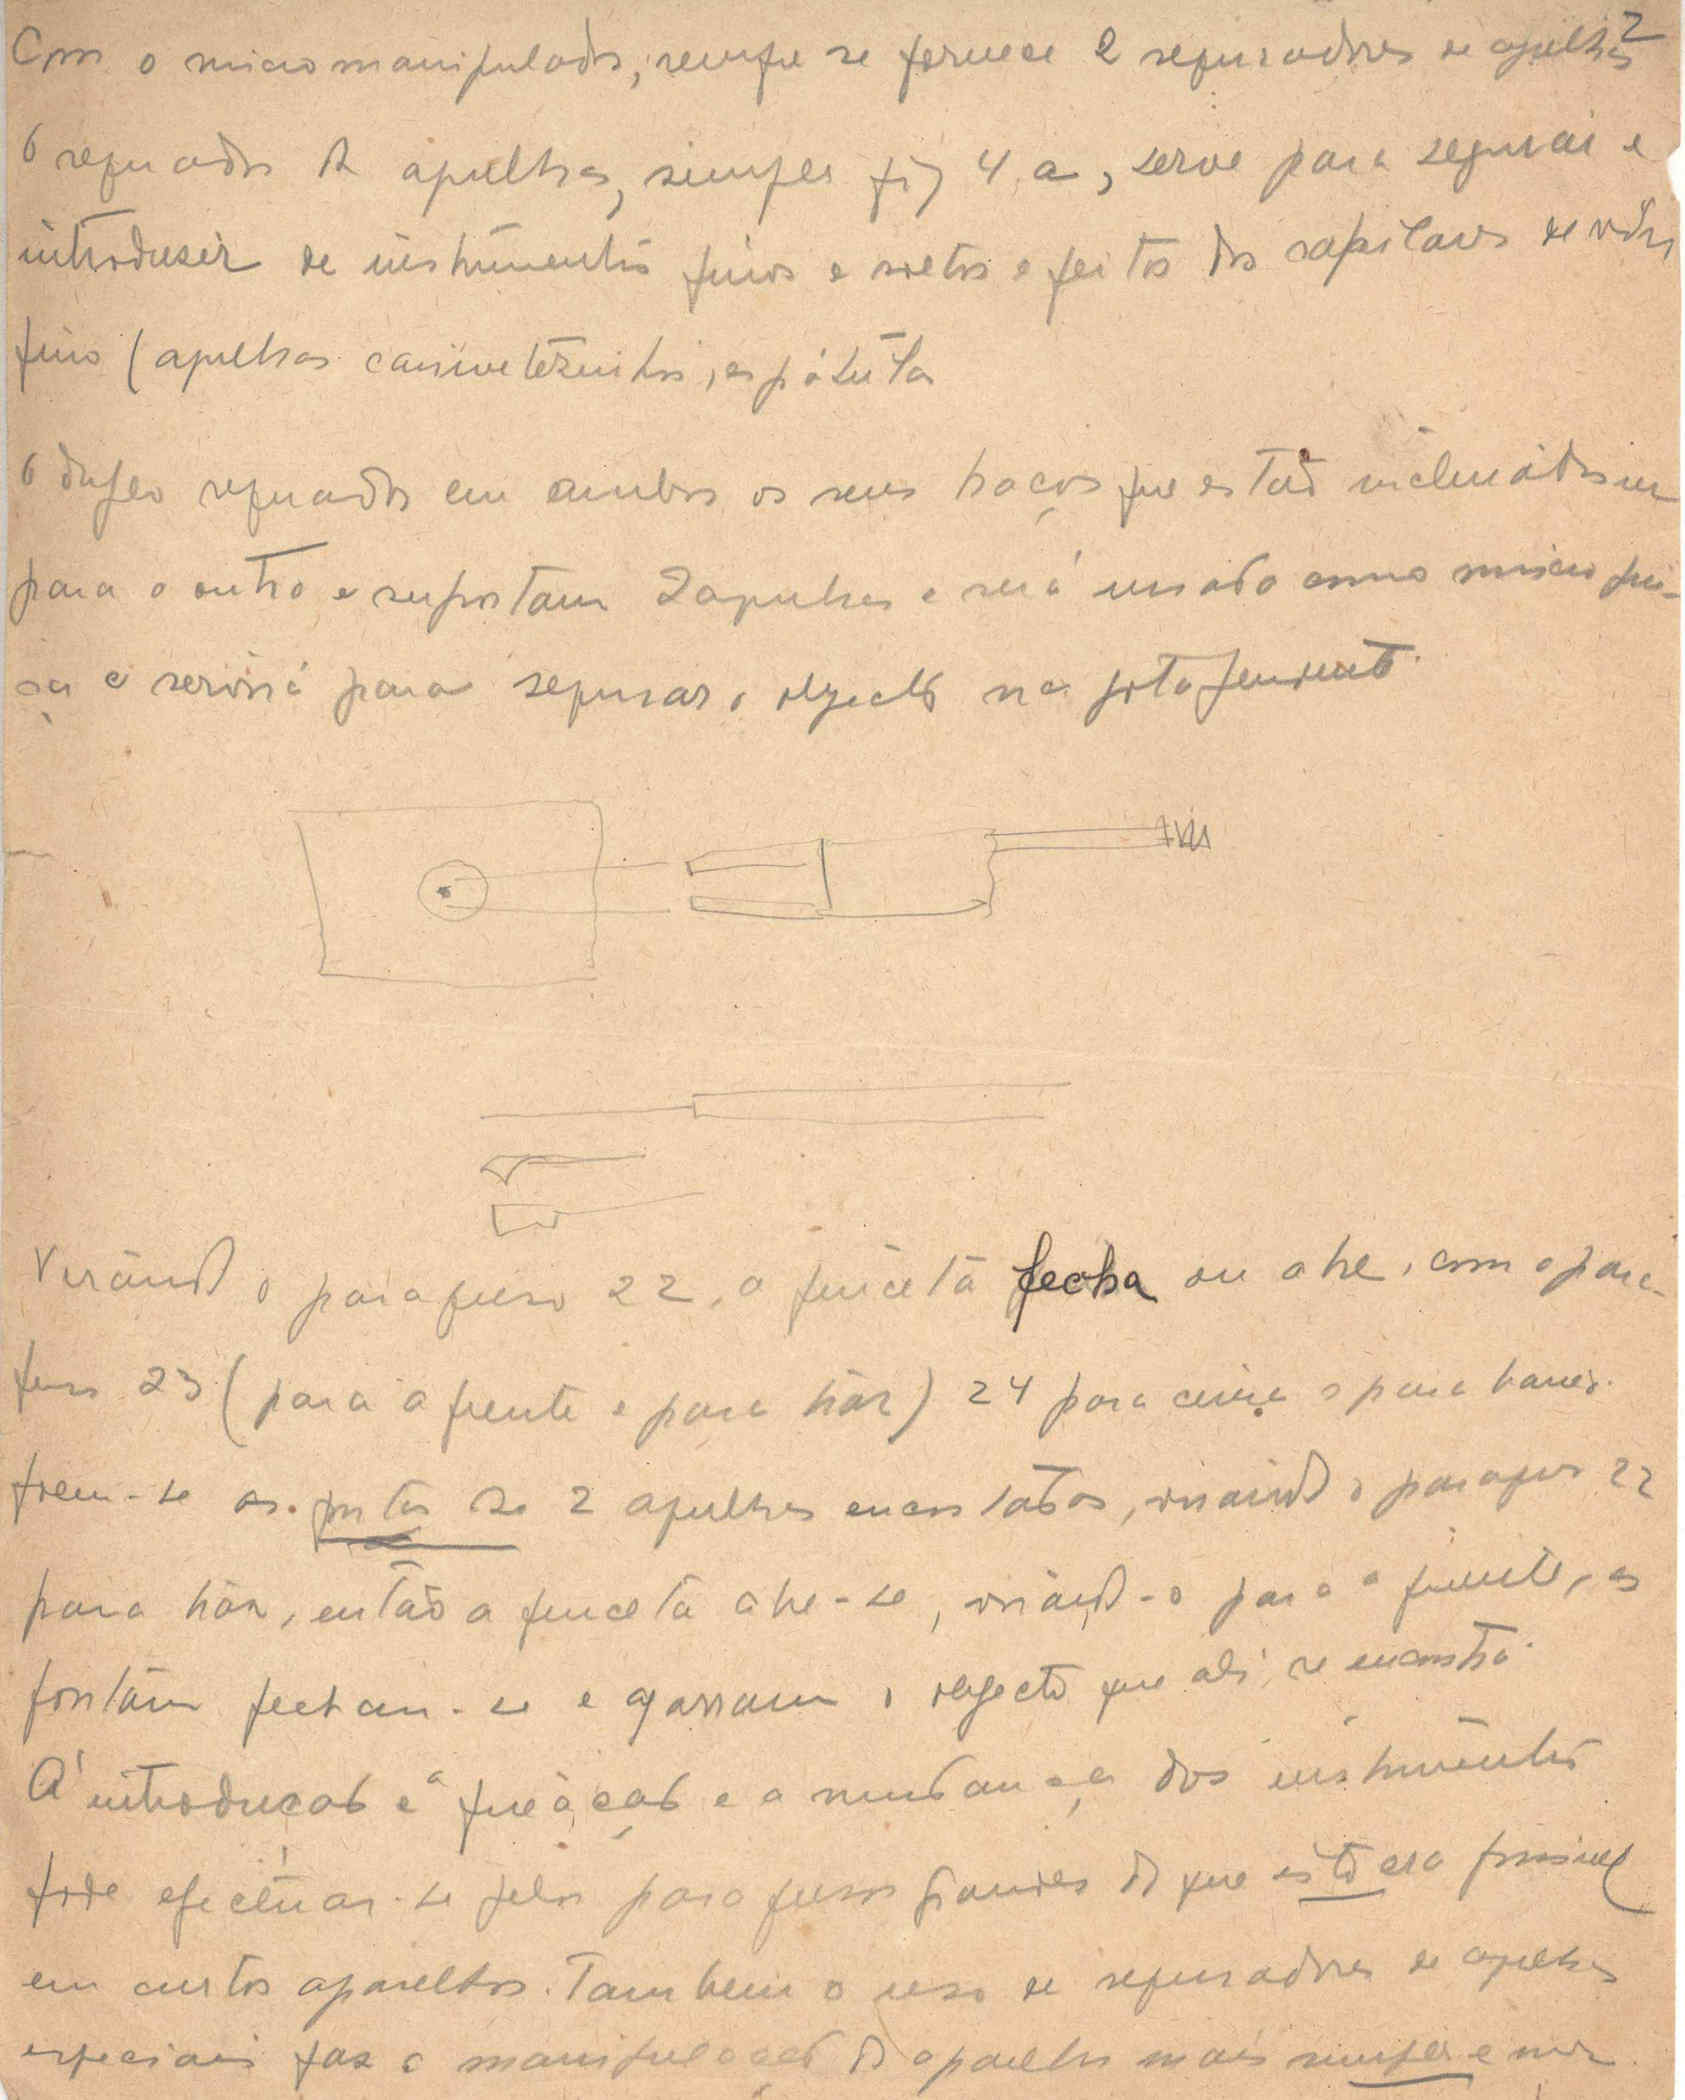 2
Com o micromanipulador, sempre se fornece 2 seguradores de agulhas
O segurador de agulhas, simples fig 4 a, serve para segurar e
introdusir de instrumentos finos e retos e feitos dos capilares de vidro
fino (agulhas canivetesinhos, espátula
O duplo segurador em ambos os seus braços que estão inclinados um
para o outro e suportam 2 agulhas e será usado como micro pin-
ça e servirá para segurar o objecto na gota pendente.
Virando o parafuso 22, a pinceta fecha ou abre, com o para-
fuso 23 (para a frente e para trás) 24 para cima e para baixo.
poem-se as pontas de 2 agulhas encostados, virando o parafuso 22
para trás, então a pinceta abre-se, virando-o para a frente, as
pontam fecham-se e agarram o objecto que ali se encontra.
A introducão e a fixação e a mudança dos instrumentos
pode efectuar-se pelos parafusos grandes do que isto era possivel
em outros aparelhos. Tambem o uso de seguradores de agulhas
especiais faz a manipulação do aparelho mais simples e